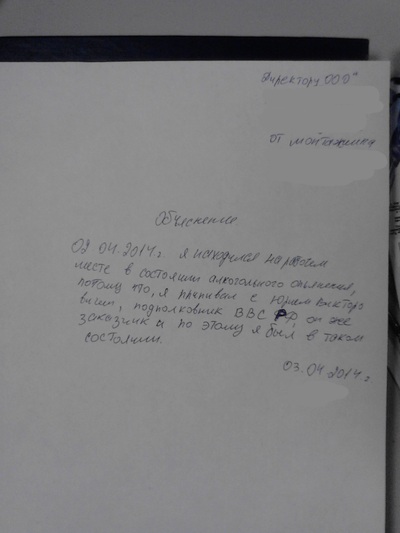 Директору ООО"
от монтажника
Объяснение
02 04.2014г. я находился на рабочем
месте в состоянии алкогольного опьянения,
потому что, я выпивал с Юрием Викторо
вичем, подполковник ВВС РФ, он же
заказчик и по этому я был в таком
состоянии.
03.04.2014г.